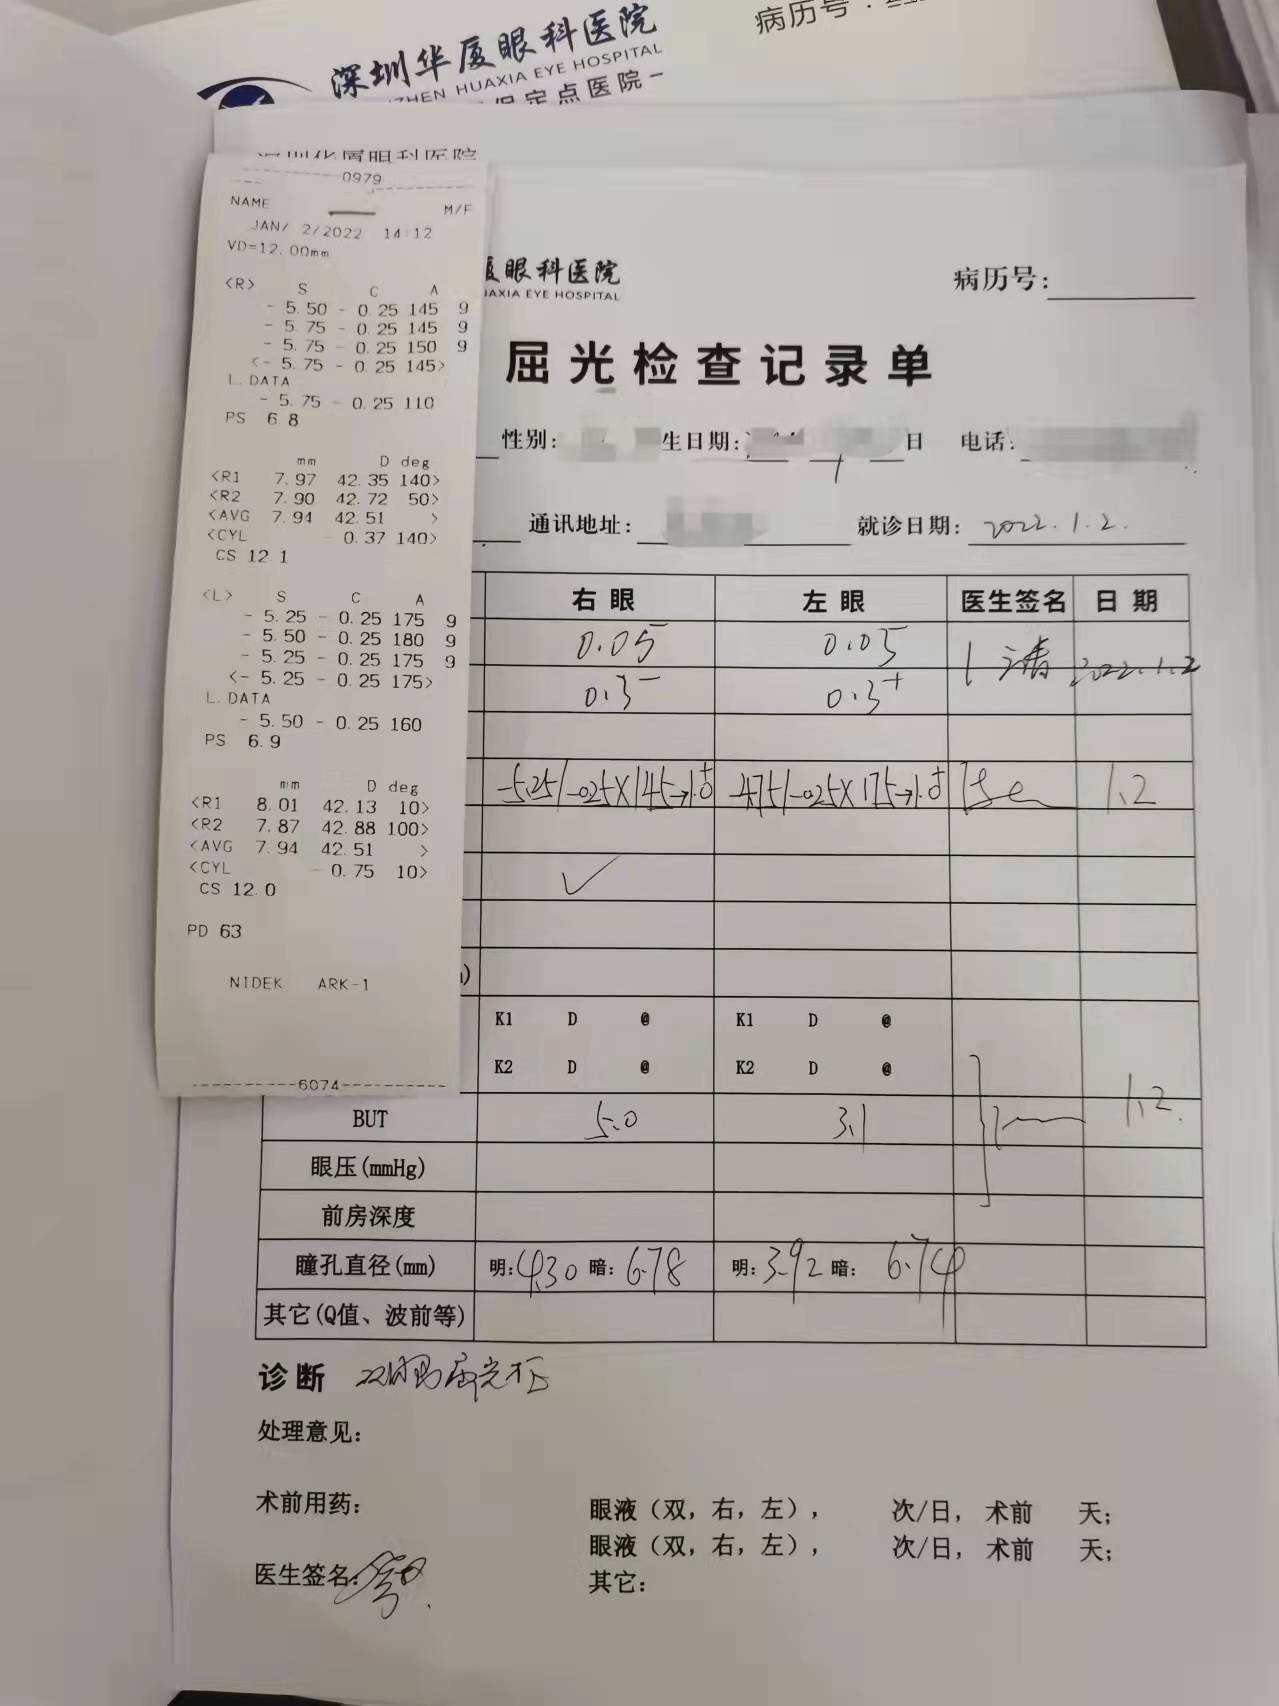 深圳华厦眼科医院
ZHEN HUAXIA EYE HOSPITAL
保定点医院
病历号：
深圳华厦眼科医院
0979
NAME M/F
JAN/ 2/2022 14:12
VD=12.00mm
<R> S C A
- 5.50 - 0.25 145 9
- 5.75 - 0.25 145 9
- 5.75 - 0.25 150 9
<- 5.75 - 0.25 145>
L.DATA
- 5.75 - 0.25 110
PS 6.8
mm D deg
<R1 7.97 42.35 140>
<R2 7.90 42.72 50>
<AVG 7.94 42.51 >
<CYL - 0.37 140>
CS 12.1
<L> S C A
- 5.25 - 0.25 175 9
- 5.50 - 0.25 180 9
- 5.25 - 0.25 175 9
<- 5.25 - 0.25 175>
L.DATA
- 5.50 - 0.25 160
PS 6.9
mm D deg
<R1 8.01 42.13 10>
<R2 7.87 42.88 100>
<AVG 7.94 42.51 >
<CYL - 0.75 10>
CS 12.0
PD 63
NIDEK ARK-1
6074
厦眼科医院
UAXIA EYE HOSPITAL
病历号：
屈光检查记录单
性别： 生日期： 日 电话：
通讯地址： 就诊日期： 2022.1.2.
右眼 左眼 医生签名 日期
0.05 0.05
0.3- 0.3+ 2022.1.2
-5.25/-0.25×145→1.0+ -4.75/-0.25×175→1.0+ 1.2
✓
)
K1 D @ K1 D @
K2 D @ K2 D @
BUT 5.0 3.1 1.2.
眼压(mmHg)
前房深度
瞳孔直径(mm) 明：4.30 暗：6.78 明：3.92 暗：6.74
其它(Q值、波前等)
诊断 双眼屈光不正
处理意见：
术前用药： 眼液（双，右，左）， 次/日，术前 天；
眼液（双，右，左）， 次/日，术前 天；
医生签名： 其它：